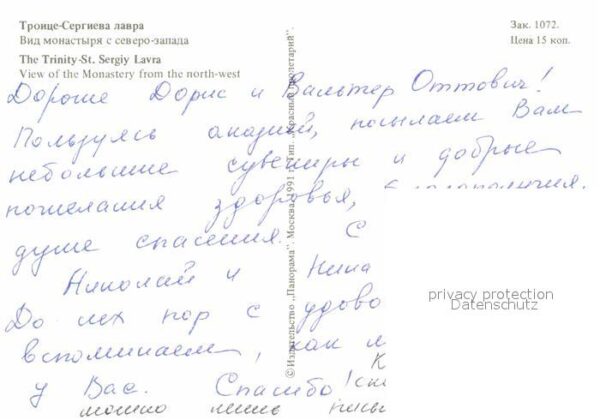 Троице-Сергиева лавра
Вид монастыря с северо-запада
The Trinity-St. Sergiy Lavra
View of the Monastery from the north-west
Зак. 1072.
Цена 15 коп.
Дорогие Дорис и Вальтер Оттович!
Пользуясь оказией, посылаем Вам
небольшие сувениры и добрые
пожелания здоровья, благополучия.
душе спасения. С
Николай и Нина
До сих пор с удово
вспоминаем, как
у Вас. Спасибо!
можно лишь
© Издательство „Панорама". Москва. 1991 г. Тип. „Красный пролетарий".
privacy protection
Datenschutz